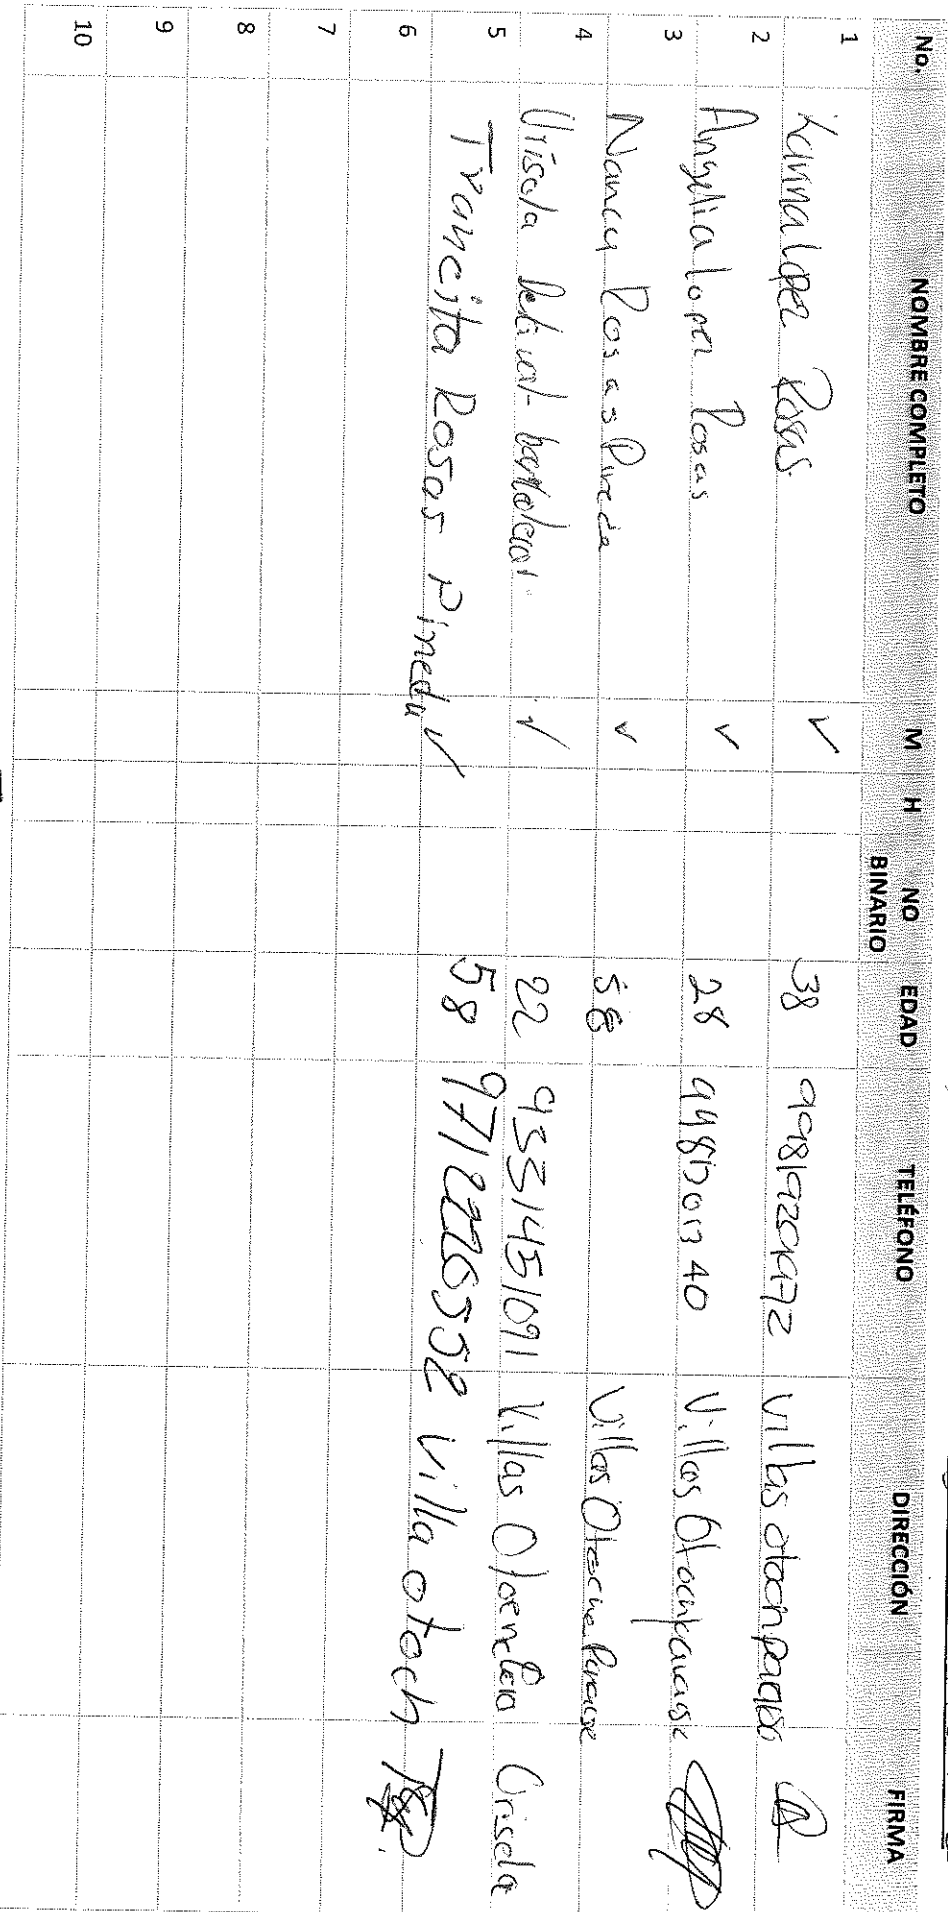 No. NOMBRE COMPLETO M H NO BINARIO EDAD TELÉFONO DIRECCIÓN FIRMA
1 Karina Lopez Rosas ✓ 38 9981920972 Villas otoch paraiso
2 Angelia Lopez Rosas ✓ 28 Villas Otoch paraise
3 Nancy Rosas Pineda ✓ 58 Villas Otoch Paraise
4 ✓ 22 9331451091 Villas
5 Trancita Rosas Pineda ✓ 58 9712226552 Villa otoch
6
7
8
9
10